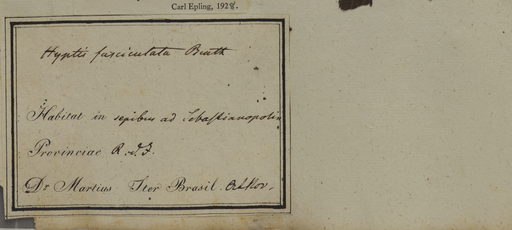 Carl Epling, 1928.
Hyptis fasciculata Benth
Habitat in sepibus ad Sebastianopolin
Provinciae R. d. J.
Dr Martius Iter Brasil. Oct Nov.